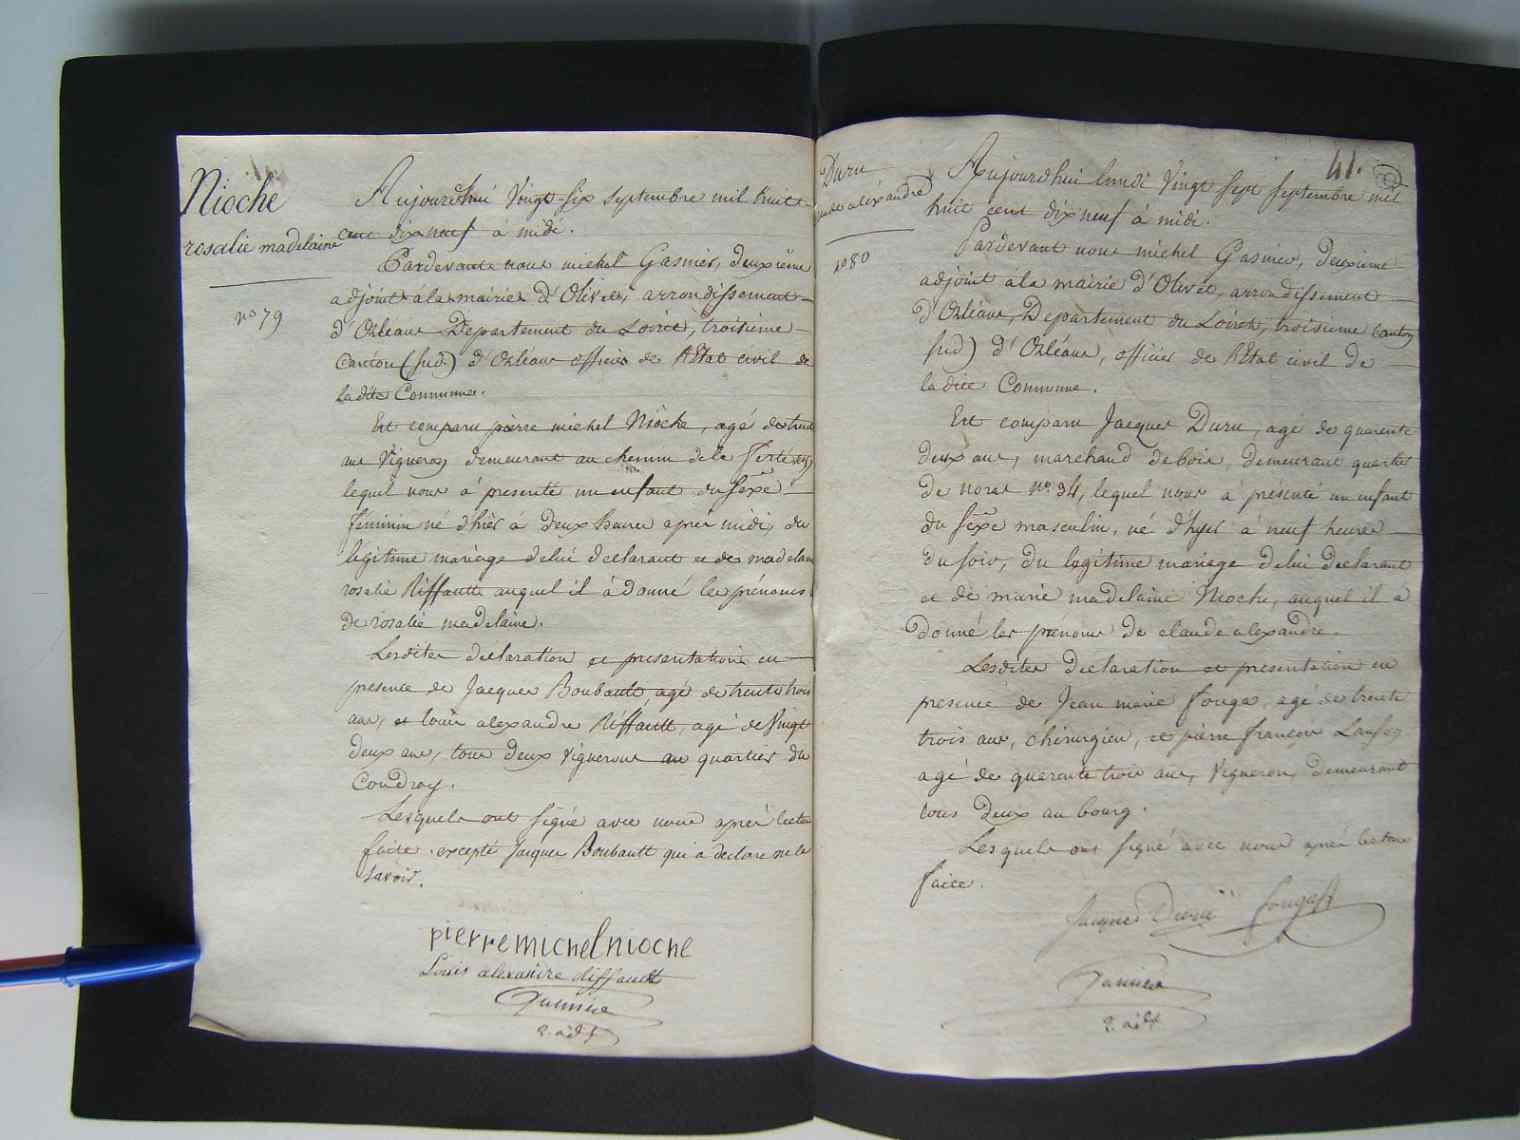 Nioche
rosalie madelaine
no 79
Aujourdhui Vingt-six septembre mil huit-
cent dix neuf à midi.
Pardevant nous michel Gasnier, deuxième
adjoint à la mairie d'Olivet, arrondissement
d'Orléans Département du Loiret, troisième
Canton (sud) d'Orléans officier de l'Etat civil de
la dite Commune.
Est comparu pierre michel Nioche, agé de trente
ans Vigneron demeurant au chemin de la ferté
lequel nous à presenté un enfant du sexe
féminin né d'hier à deux heures après midi, du
légitime mariage de lui declarant et de madelaine
rosalie Riffault auquel il à donné les prénoms
de rosalie madelaine.
Lesdites declaration et presentation en
presence de Jacques Boubault agé de trente trois
ans, et louis alexandre Riffault, agé de Vingt
deux ans, tous deux Vignerons au quartier du
Coudray.
Lesquels ont signé avec nous après lecture
faite excepté Jacques Boubault qui a declaré ne le
savoir.
pierre michel nioche
Louis alexandre Riffault
2. adjt
41.
Duru
claude aléxandre
no 80
Aujourdhui lundi Vingt sept septembre mil
huit cent dix neuf à midi.
Pardevant nous michel Gasnier, deuxième
adjoint à la mairie d'Olivet, arrondissement
d'Orléans, Département du Loiret, troisième canton
sud) d'Orléans, officier de l'Etat civil de
la dite Commune.
Est comparu Jacques Duru, agé de quarente
deux ans, marchand de bois, demeurant quartier
de noras no. 34, lequel nous à présenté un enfant
du sexe masculin, né d'hyer à neuf heures
du soir, du legitime mariage de lui declarant
et de marie madelaine Nioche, auquel il à
donné les prénoms de claude alexandre.
Lesdites declaration et presentation en
presence de Jean marie fouga, agé de trente
trois ans, chirurgien, et pierre françois
agé de quarente trois ans, Vigneron, demeurant
tous deux au bourg.
Lesquels ont signé avec nous après lecture
faite.
Jacques Duru
2. adjt